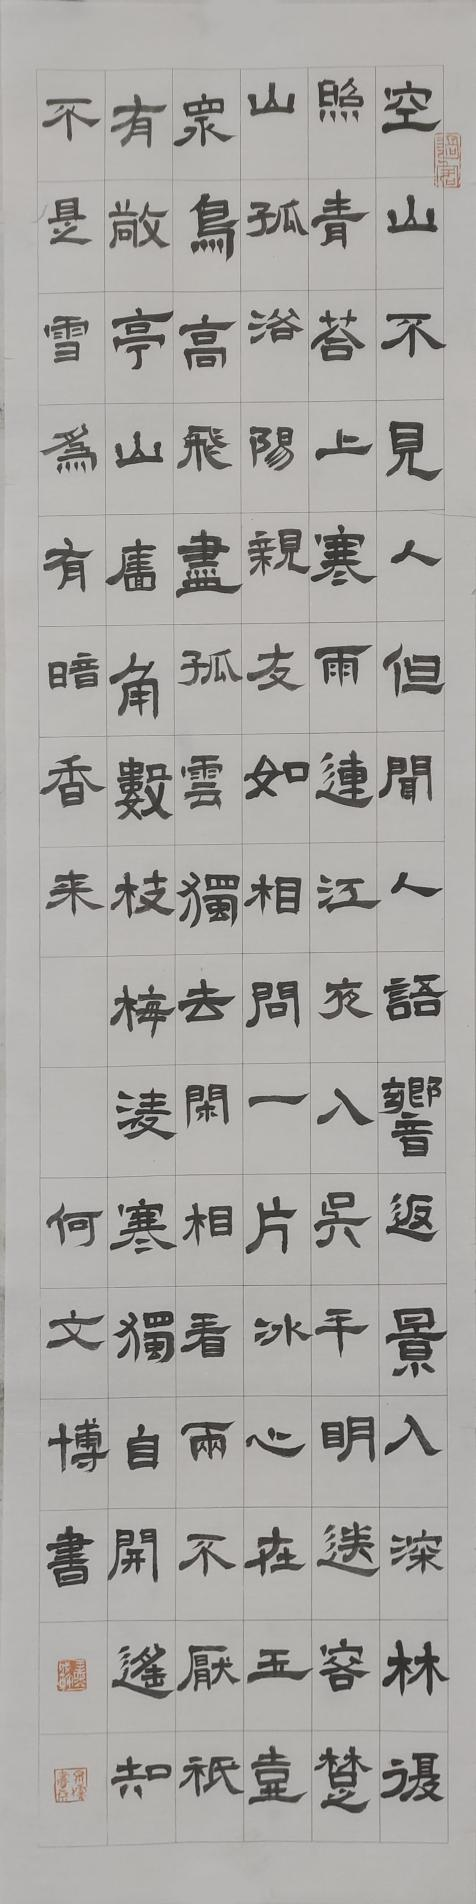 空山不見人但聞人語響返景入深林復
照青苔上寒雨連江夜入吳平明送客楚
山孤洛陽親友如相問一片冰心在玉壺
衆鳥高飛盡孤雲獨去閑相看兩不厭祇
有敬亭山牆角數枝梅淩寒獨自開遙知
不是雪爲有暗香来 何文博書